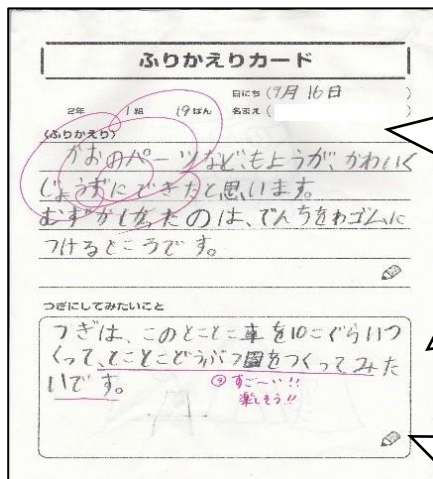 ふりかえりカード
日にち(9月16日)
2年 1組 19ばん 名まえ( )
〈ふりかえり〉
かおのパーツなど、もようが、かわいく
じょうずにできたと思います。
むずかしかったのは、でんちをわゴムに
つけるところです。
つぎにしてみたいこと
つぎは、このとことこ車を10こぐらいつ
くって、とことこどうぶつ園をつくってみた
いです。
すご〜い!!
楽しそう!!